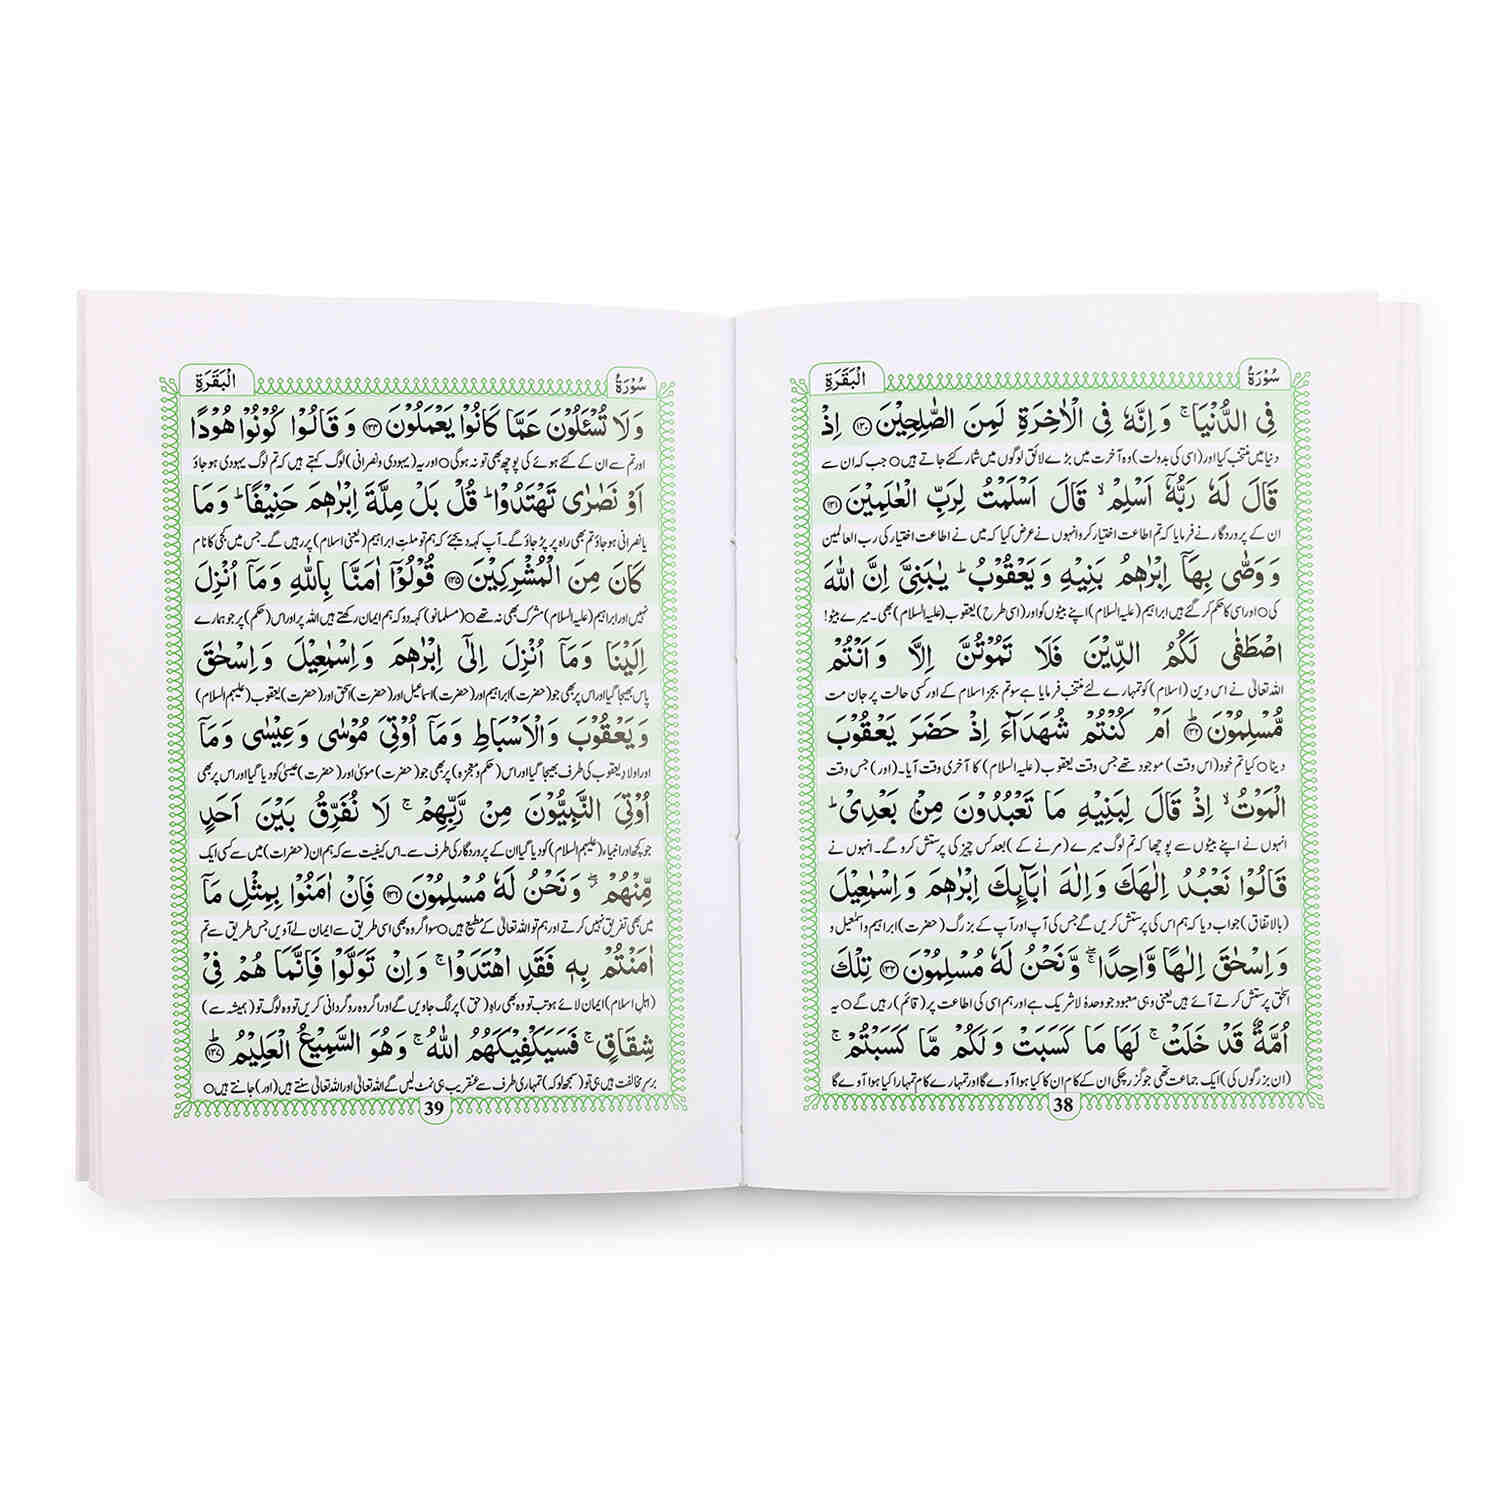 سُوْرَةُ
الْبَقَرَةِ
فِی الدُّنْیَا ۚ وَ اِنَّهٗ فِی الْاٰخِرَةِ لَمِنَ الصّٰلِحِیْنَ ۝۱۳۰ اِذْ
دنیا میں منتخب کیا اور (اسی کی بدولت) وہ آخرت میں بڑے لائق لوگوں میں شمار کئے جاتے ہیں○ جب کہ ان سے
قَالَ لَهٗ رَبُّهٗۤ اَسْلِمْ ۙ قَالَ اَسْلَمْتُ لِرَبِّ الْعٰلَمِیْنَ ۝۱۳۱
ان کے پروردگار نے فرمایا کہ تم اطاعت اختیار کرو انہوں نے عرض کیا کہ میں نے اطاعت اختیار کی رب العالمین
وَ وَصّٰی بِهَاۤ اِبْرٰهٖمُ بَنِیْهِ وَ یَعْقُوْبُ ؕ یٰبَنِیَّ اِنَّ اللّٰهَ
کی○ اور اسی کا حکم کر گئے ہیں ابراہیم (علیہ السلام) اپنے بیٹوں کو اور (اسی طرح) یعقوب (علیہ السلام) بھی۔ میرے بیٹو!
اصْطَفٰی لَكُمُ الدِّیْنَ فَلَا تَمُوْتُنَّ اِلَّا وَ اَنْتُمْ
اللہ تعالیٰ نے اس دین (اسلام) کو تمہارے لئے منتخب فرمایا ہے سو تم بجز اسلام کے اور کسی حالت پر جان مت
مُّسْلِمُوْنَ ؕ۝۱۳۲ اَمْ كُنْتُمْ شُهَدَآءَ اِذْ حَضَرَ یَعْقُوْبَ
دینا○ کیا تم خود (اس وقت) موجود تھے جس وقت یعقوب (علیہ السلام) کا آخری وقت آیا۔ (اور) جس وقت
الْمَوْتُ ۙ اِذْ قَالَ لِبَنِیْهِ مَا تَعْبُدُوْنَ مِنْۢ بَعْدِیْ ؕ
انہوں نے اپنے بیٹوں سے پوچھا کہ تم لوگ میرے (مرنے کے) بعد کس چیز کی پرستش کرو گے۔ انہوں نے
قَالُوْا نَعْبُدُ اِلٰهَكَ وَ اِلٰهَ اٰبَآىِٕكَ اِبْرٰهٖمَ وَ اِسْمٰعِیْلَ
(بالاتفاق) جواب دیا کہ ہم اس کی پرستش کریں گے جس کی آپ اور آپ کے بزرگ (حضرت) ابراہیم و اسمٰعیل و
وَ اِسْحٰقَ اِلٰهًا وَّاحِدًا ۖۚ وَّ نَحْنُ لَهٗ مُسْلِمُوْنَ ۝۱۳۳ تِلْكَ
اسحٰق پرستش کرتے آئے ہیں یعنی وہی معبود جو وحدہٗ لاشریک ہے اور ہم اسی کی اطاعت پر (قائم) رہیں گے○ یہ
اُمَّةٌ قَدْ خَلَتْ ۚ لَهَا مَا كَسَبَتْ وَ لَكُمْ مَّا كَسَبْتُمْ ۚ
(ان بزرگوں کی) ایک جماعت تھی جو گزر چکی ان کے کام ان کا کیا ہوا آوے گا اور تمہارے کام تمہارا کیا ہوا آوے گا
38
سُوْرَةُ
الْبَقَرَةِ
وَ لَا تُسْـَٔلُوْنَ عَمَّا كَانُوْا یَعْمَلُوْنَ ۝۱۳۴ وَ قَالُوْا كُوْنُوْا هُوْدًا
اور تم سے ان کے کئے ہوئے کی پوچھ بھی تو نہ ہوگی○ اور یہ (یہودی و نصرانی) لوگ کہتے ہیں کہ تم لوگ یہودی ہو جاؤ
اَوْ نَصٰرٰی تَهْتَدُوْا ؕ قُلْ بَلْ مِلَّةَ اِبْرٰهٖمَ حَنِیْفًا ؕ وَ مَا
یا نصرانی ہو جاؤ تم بھی راہ پر پڑ جاؤ گے۔ آپ کہہ دیجئے کہ ہم تو ملت ابراہیم (یعنی اسلام) پر رہیں گے۔ جس میں کجی کا نام
كَانَ مِنَ الْمُشْرِكِیْنَ ۝۱۳۵ قُوْلُوْۤا اٰمَنَّا بِاللّٰهِ وَ مَاۤ اُنْزِلَ
نہیں اور ابراہیم (علیہ السلام) مشرک بھی نہ تھے○ (مسلمانو) کہہ دو کہ ہم ایمان رکھتے ہیں اللہ پر اور اس (حکم) پر جو ہمارے
اِلَیْنَا وَ مَاۤ اُنْزِلَ اِلٰۤی اِبْرٰهٖمَ وَ اِسْمٰعِیْلَ وَ اِسْحٰقَ
پاس بھیجا گیا اور اس پر بھی جو (حضرت) ابراہیم اور (حضرت) اسماعیل اور (حضرت) اسحٰق اور (حضرت) یعقوب (علیہم السلام)
وَ یَعْقُوْبَ وَ الْاَسْبَاطِ وَ مَاۤ اُوْتِیَ مُوْسٰی وَ عِیْسٰی وَ مَاۤ
اور اولاد یعقوب کی طرف بھیجا گیا اور اس (حکم و معجزہ) پر بھی جو (حضرت) موسیٰ اور (حضرت) عیسیٰ کو دیا گیا اور اس پر بھی
اُوْتِیَ النَّبِیُّوْنَ مِنْ رَّبِّهِمْ ۚ لَا نُفَرِّقُ بَیْنَ اَحَدٍ
جو کچھ اور انبیاء (علیہم السلام) کو دیا گیا ان کے پروردگار کی طرف سے۔ اس کیفیت سے کہ ہم ان (حضرات) میں سے کسی ایک
مِّنْهُمْ ۖ وَ نَحْنُ لَهٗ مُسْلِمُوْنَ ۝۱۳۶ فَاِنْ اٰمَنُوْا بِمِثْلِ مَاۤ
میں بھی تفریق نہیں کرتے اور ہم تو اللہ تعالیٰ کے مطیع ہیں○ سو اگر وہ بھی اسی طریق سے ایمان لے آویں جس طریق سے تم
اٰمَنْتُمْ بِهٖ فَقَدِ اهْتَدَوْا ۚ وَ اِنْ تَوَلَّوْا فَاِنَّمَا هُمْ فِیْ
(اہل اسلام) ایمان لائے ہو تب تو وہ بھی راہِ (حق) پر لگ جاویں گے اور اگر وہ روگردانی کریں تو وہ لوگ تو (ہمیشہ سے)
شِقَاقٍ ۚ فَسَیَكْفِیْكَهُمُ اللّٰهُ ۚ وَ هُوَ السَّمِیْعُ الْعَلِیْمُ ؕ۝۱۳۷
برسرِ مخالفت ہیں ہی تو (سمجھ لو کہ) تمہاری طرف سے عنقریب ہی نمٹ لیں گے اللہ تعالیٰ اور اللہ تعالیٰ سنتے ہیں (اور) جانتے ہیں○
39